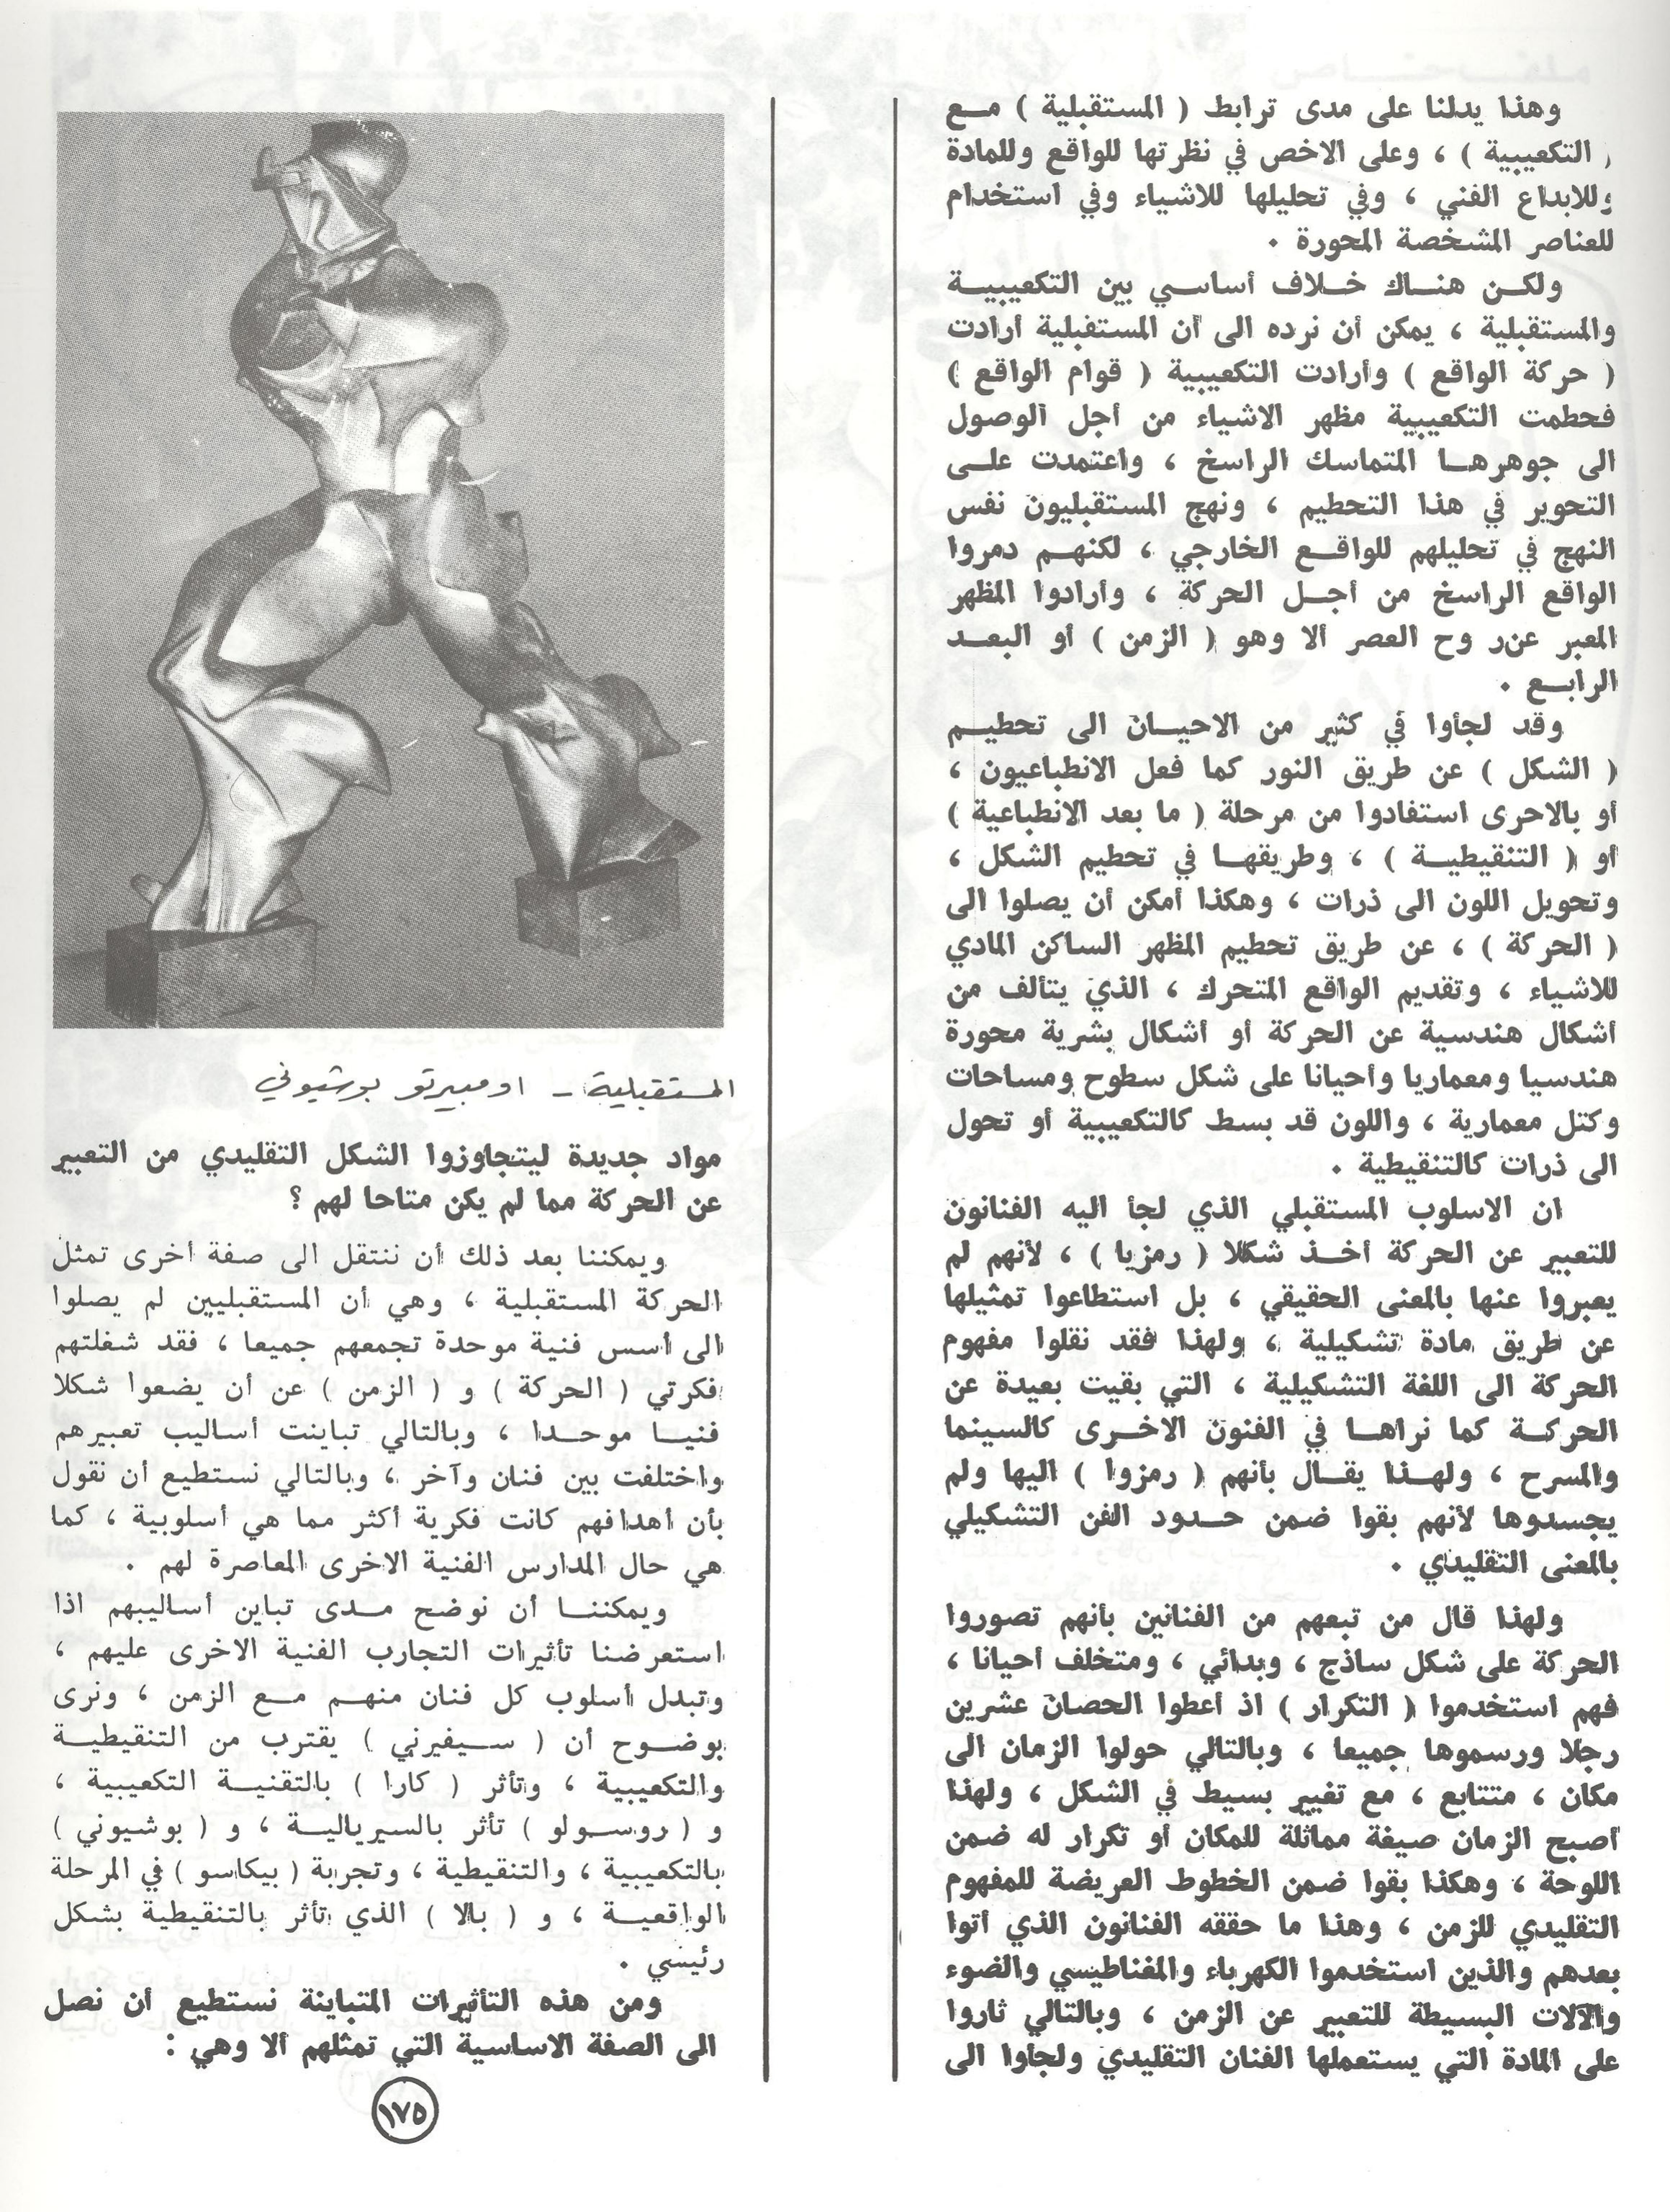 وهذا يدلنا على مدى ترابط ( المستقبلية ) مع
( التكعيبية ) ، وعلى الاخص في نظرتها للواقع وللمادة
وللابداع الفني ، وفي تحليلها للاشياء وفي استخدام
للعناصر المشخصة المحورة .
ولكن هناك خلاف أساسي بين التكعيبية
والمستقبلية ، يمكن أن نرده الى أن المستقبلية أرادت
( حركة الواقع ) وأرادت التكعيبية ( قوام الواقع )
فحطمت التكعيبية مظهر الاشياء من أجل الوصول
الى جوهرها المتماسك الراسخ ، واعتمدت على
التحوير في هذا التحطيم ، ونهج المستقبليون نفس
النهج في تحليلهم للواقع الخارجي ، لكنهم دمروا
الواقع الراسخ من أجل الحركة ، وأرادوا المظهر
المعبر عن روح العصر ألا وهو ( الزمن ) أو البعد
الرابع .
وقد لجأوا في كثير من الاحيان الى تحطيم
( الشكل ) عن طريق النور كما فعل الانطباعيون ،
أو بالاحرى استفادوا من مرحلة ( ما بعد الانطباعية )
أو ( التنقيطية ) ، وطريقها في تحطيم الشكل ،
وتحويل اللون الى ذرات ، وهكذا أمكن أن يصلوا الى
( الحركة ) ، عن طريق تحطيم المظهر الساكن المادي
للاشياء ، وتقديم الواقع المتحرك ، الذي يتألف من
أشكال هندسية عن الحركة أو أشكال بشرية محورة
هندسيا ومعماريا وأحيانا على شكل سطوح ومساحات
وكتل معمارية ، واللون قد بسط كالتكعيبية أو تحول
الى ذرات كالتنقيطية .
ان الاسلوب المستقبلي الذي لجأ اليه الفنانون
للتعبير عن الحركة أخذ شكلا ( رمزيا ) ، لأنهم لم
يعبروا عنها بالمعنى الحقيقي ، بل استطاعوا تمثيلها
عن طريق مادة تشكيلية ، ولهذا فقد نقلوا مفهوم
الحركة الى اللغة التشكيلية ، التي بقيت بعيدة عن
الحركة كما نراها في الفنون الاخرى كالسينما
والمسرح ، ولهذا يقال بأنهم ( رمزوا ) اليها ولم
يجسدوها لأنهم بقوا ضمن حدود الفن التشكيلي
بالمعنى التقليدي .
ولهذا قال من تبعهم من الفنانين بأنهم تصوروا
الحركة على شكل ساذج ، وبدائي ، ومتخلف أحيانا ،
فهم استخدموا ( التكرار ) اذ أعطوا الحصان عشرين
رجلا ورسموها جميعا ، وبالتالي حولوا الزمان الى
مكان ، متتابع ، مع تغيير بسيط في الشكل ، ولهذا
أصبح الزمان صيغة مماثلة للمكان أو تكرار له ضمن
اللوحة ، وهكذا بقوا ضمن الخطوط العريضة للمفهوم
التقليدي للزمن ، وهذا ما حققه الفنانون الذي أتوا
بعدهم والذين استخدموا الكهرباء والمغناطيسي والضوء
والآلات البسيطة للتعبير عن الزمن ، وبالتالي ثاروا
على المادة التي يستعملها الفنان التقليدي ولجاوا الى
المستقبلية - اومبيرتو بوشيوني
مواد جديدة ليتجاوزوا الشكل التقليدي من التعبير
عن الحركة مما لم يكن متاحا لهم ؟
ويمكننا بعد ذلك أن ننتقل الى صفة أخرى تمثل
الحركة المستقبلية ، وهي أن المستقبليين لم يصلوا
الى أسس فنية موحدة تجمعهم جميعا ، فقد شغلتهم
فكرتي ( الحركة ) و ( الزمن ) عن أن يضعوا شكلا
فنيا موحدا ، وبالتالي تباينت أساليب تعبيرهم
واختلفت بين فنان وآخر ، وبالتالي نستطيع أن نقول
بأن أهدافهم كانت فكرية أكثر مما هي أسلوبية ، كما
هي حال المدارس الفنية الاخرى المعاصرة لهم .
ويمكننا أن نوضح مدى تباين أساليبهم اذا
استعرضنا تأثيرات التجارب الفنية الاخرى عليهم ،
وتبدل أسلوب كل فنان منهم مع الزمن ، ونرى
بوضوح أن ( سيفيرني ) يقترب من التنقيطية
والتكعيبية ، وتأثر ( كارا ) بالتقنية التكعيبية ،
و ( روسولو ) تأثر بالسيريالية ، و ( بوشيوني )
بالتكعيبية ، والتنقيطية ، وتجربة ( بيكاسو ) في المرحلة
الواقعية ، و ( بالا ) الذي تأثر بالتنقيطية بشكل
رئيسي .
ومن هذه التأثيرات المتباينة نستطيع أن نصل
الى الصفة الاساسية التي تمثلهم ألا وهي :
١٧٥